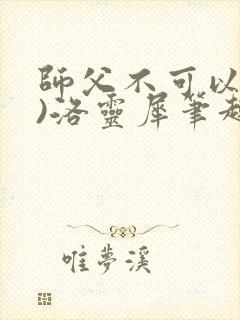 師父不可以
)洛靈犀筆趣
唯夢溪